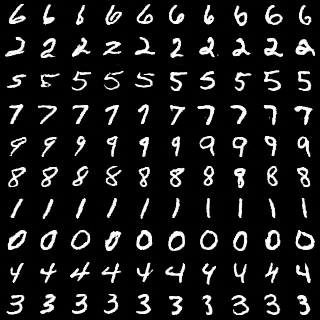 6 6 6 6 6 6 6 6 6 6
2 2 2 2 2 2 2 2 2 2
5 5 5 5 5 5 5 5 5 5
7 7 7 7 7 7 7 7 7 7
9 9 9 9 9 9 9 9 9 9
8 8 8 8 8 8 8 8 8 8
1 1 1 1 1 1 1 1 1 1
0 0 0 0 0 0 0 0 0 0
4 4 4 4 4 4 4 4 4 4
3 3 3 3 3 3 3 3 3 3